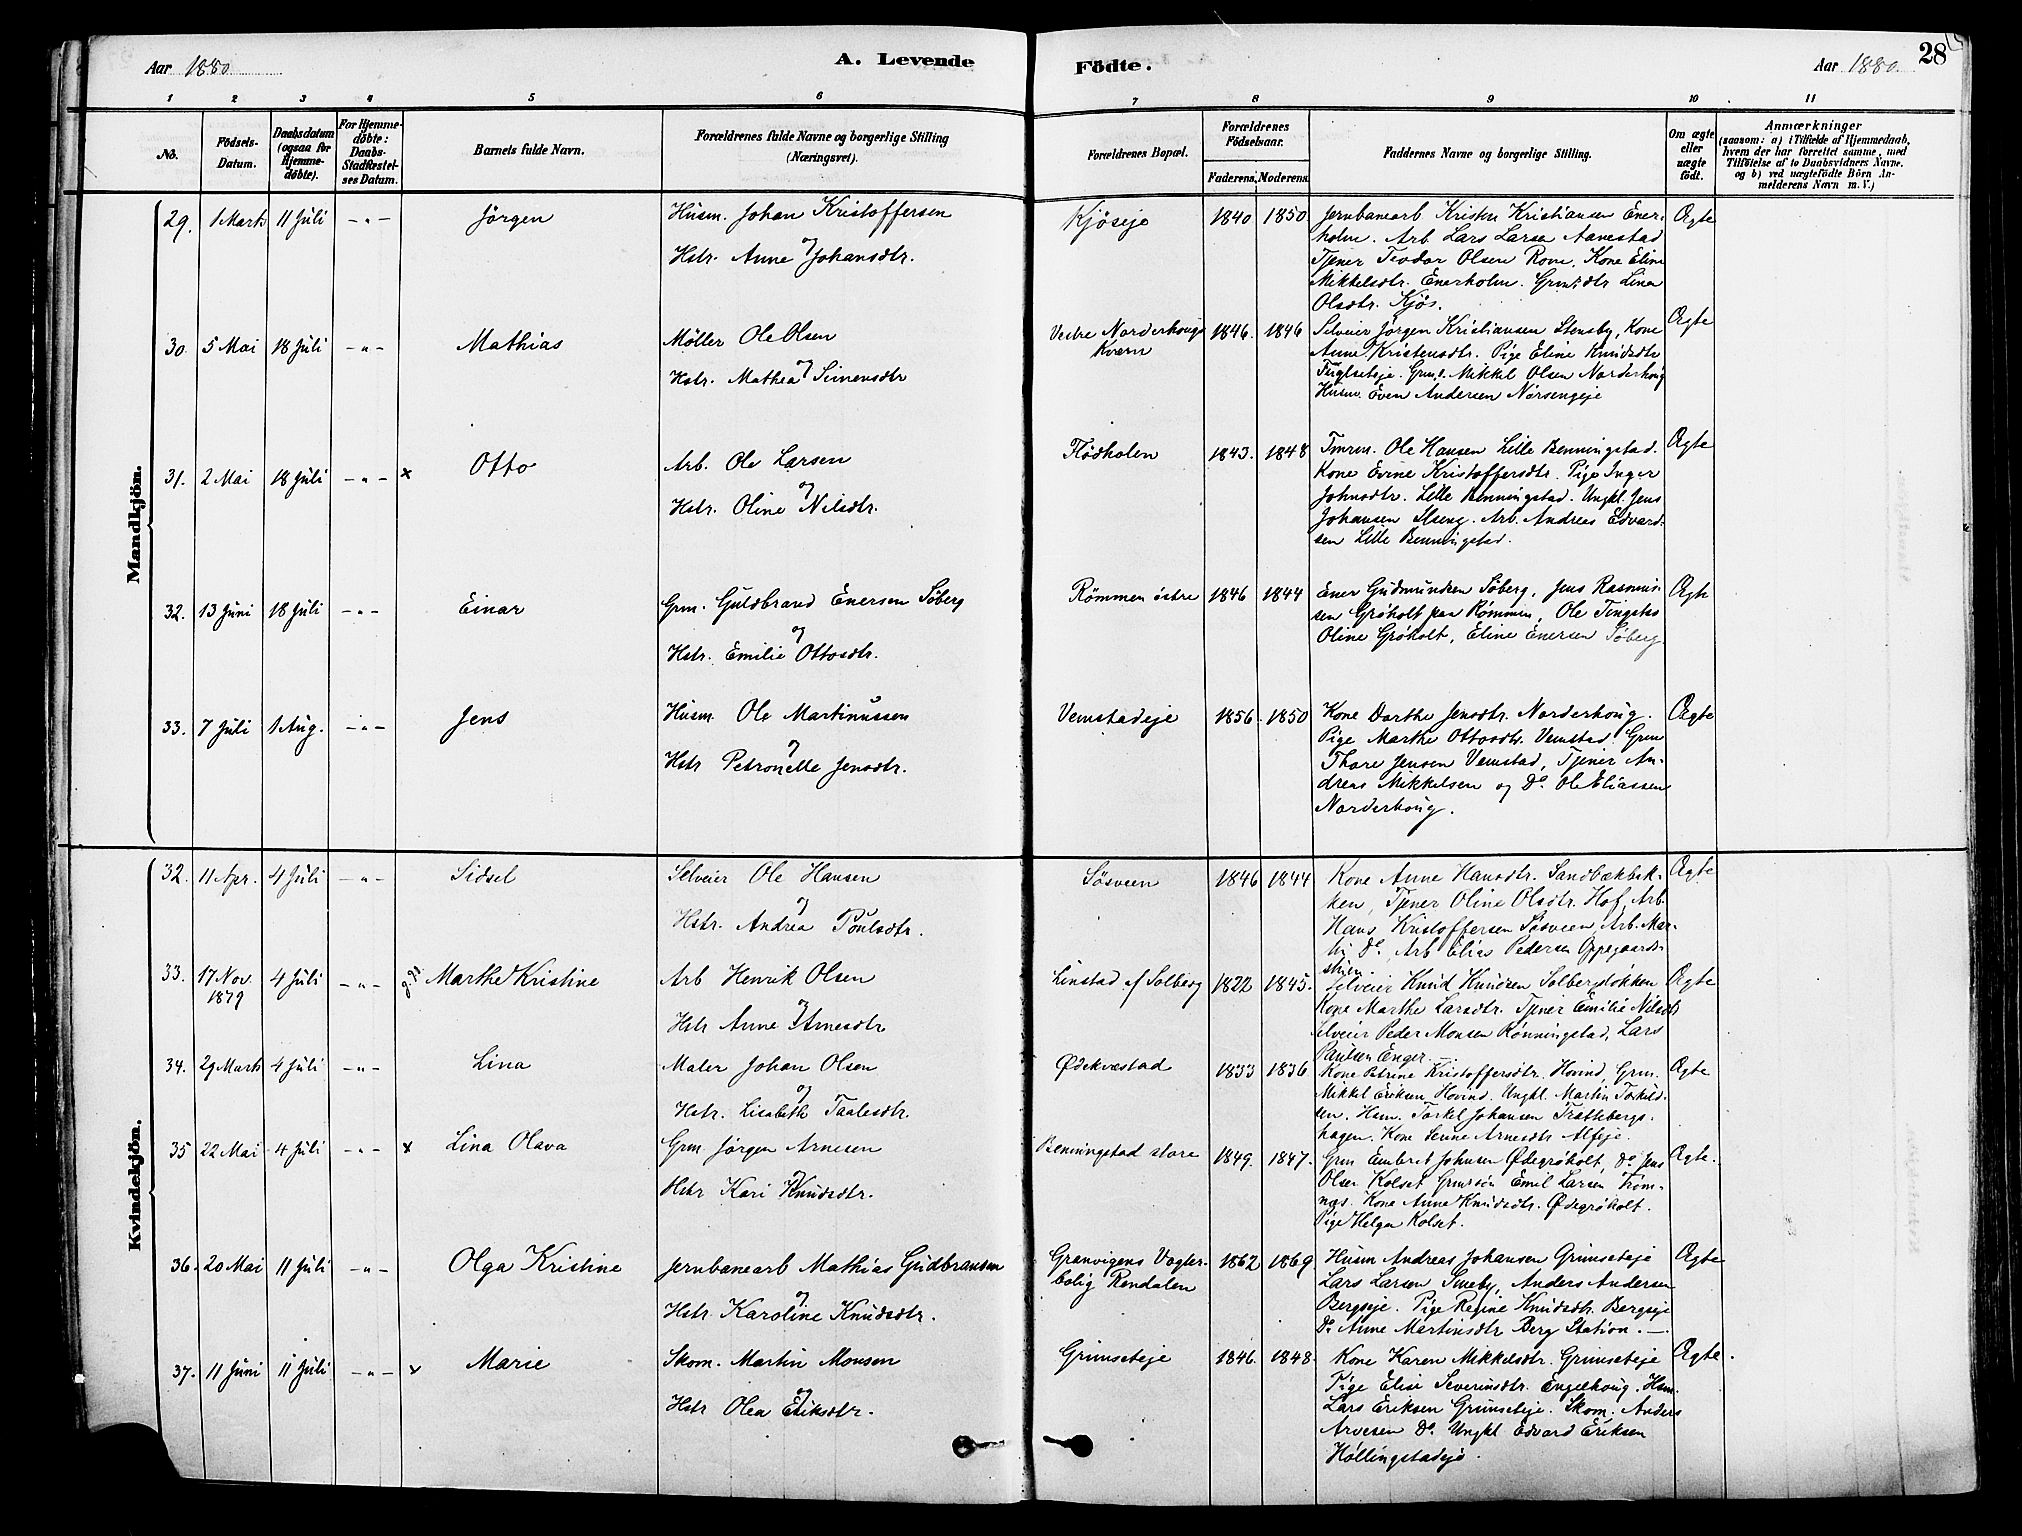 Aar 1880
A. Levende
Födte.
Aar 1880.
28
1 2 3 4 5 6 7 8 9 10 11
No.
Födsels-Datum.
Daabsdatum (ogsaa for Hjemmedöbte).
For Hjemmedöbte: Daabs-Stadfæstelses Datum.
Barnets fulde Navn.
Forældrenes fulde Navne og borgerlige Stilling
(Næringsvei).
Forældrenes Bopæl.
Forældrenes Födselsaar.
Faderens. Moderens.
Faddernes Navne og borgerlige Stilling.
Om ægte eller uægte födt.
Anmærkninger
(saasom: a) i Tilfælde af Hjemmedaab,
hvem der har forrettet samme, med
Tilföielse af to Daabsvidners Navne.
og b) ved uægtefödte Börn Anmelderens Navn m. V.)
Mandkjön.
29. 1 Marts 11 Juli -"- Jörgen Husm. Johan Kristoffersen
og
Hstr. Anne Johansdtr.
Kjöseje 1840 1850 Jernbanearb Kristen Kristiansen Ener-
holm. Arb Lars Larsen Aanestad
Tjener Teodor Olsen Rone, Kone Eline
Mikkelsdtr. Enerholm. Grmdtr Lina
Olsdtr. Kjös.
Ægte
30. 5 Mai 18 Juli -"- Mathias Möller Ole Olsen
og
Hstr. Mathea Simensdtr
Vestre Norderhougs
Kværn 1846. 1846 Selveier Jörgen Kristiansen Stensby, Kone
Anne Kristensdtr. Pige Eline Knudsdtr
Fuglseteje. Grm. Mikkel Olsen Norderhoug
Husm. Even Andersen Nörsengeje
Ægte
31. 2 Mai 18 Juli -"- x Otto Arb. Ole Larsen
og
Hstr. Oline Nilsdtr.
Flödholen 1843. 1848 Tmrm. Ole Hansen Lille Benningstad.
Kone Evine Kristoffersdtr. Pige Inger
Johnsdtr. Lille Benningstad. Ungkl. Jens
Johansen Ilseng. Arb. Andreas Edvard-
sen Lille Benningstad.
Ægte
32. 13 Juni 18 Juli -"- Einar Grm. Guldbrand Enersen Söberg
og
Hstr. Emilie Ottosdtr.
Römmen östre 1846 1844 Ener Gudmundsen Söberg, Jens Rasmus-
sen Gröholt paa Römmen, Ole Tingstad
Oline Gröholt, Eline Enersen Söberg
Ægte
33. 7 Juli 1 Aug. -"- Jens Husm. Ole Martinussen
og
Hstr Petronelle Jensdtr.
Vemstadeje 1856. 1850 Kone Dorthe Jensdtr. Norderhoug.
Pige Marthe Ottosdtr. Vemstad. Grm
Thore Jensen Vemstad, Tjener An-
dreas Mikkelsen og Do. Ole Eliassen
Norderhoug.
Ægte
Kvindekjön.
32. 11 Apr. 4 Juli -"- Sidsel Selveier Ole Hansen
og
Hstr. Andrea Poulsdtr.
Sösveen 1846 1844 Kone Anne Hansdtr. Sandbækbak-
ken, Tjener Oline Olsdtr. Hof, Arb.
Hans Kristoffersen Sösveen, Arb. Mar-
tin Do, Arb Elias Pedersen Oppegaards-
stuen.
Ægte
33. 17 Nov. 1879 4 Juli -"- Marthe Kristine Arb Henrik Olsen
og
Hstr Anne Arnesdtr
Linstad af Solberg 1822 1845. Selveier Knud Knudsen Solbergløkken
Kone Marthe Larsdtr. Tjener Emilie Nilsdtr
Selveier Peder Monsen Rönningstad, Lars
Paulsen Enger.
Ægte
34. 29 Marts 4 Juli -"- Lina Maler Johan Olsen
og
Hstr. Lisabeth Taalesdtr.
Ødekvæstad 1833 1836 Kone Petrine Kristoffersdtr. Hovind, Grm.
Mikkel Eriksen Hovind. Ungkl. Martin Torkild-
sen. Hsm. Torkel Johansen Trættebergs-
hagen. Kone Senne Arnesdtr Alfeje.
Ægte
35 22 Mai 4 Juli -"- x Lina Olava Grm Jörgen Arnesen
og
Hstr Kari Knudsdtr.
Benningstad store 1849. 1847. Grm Embret Johnsen Ødegröholt, Do. Jens
Olsen Kolset Grmsön Emil Larsen Tröm-
næs. Kone Anne Knudsdtr. Ødegröholt.
Pige Helga Kolset.
Ægte.
36. 20 Mai 11 Juli -"- Olga Kristine Jernbanearb Mathias Gudbransen
og
Hstr. Karoline Knudsdtr.
Granvigens Vogter-
bolig Rendalen 1862 1869. Husm Andreas Johansen Grimseteje
Lars Larsen Smeby, Anders Andersen
Bergseje. Pige Regine Knudsdtr. Bergseje
Do. Anne Martinsdtr Berg Station. —
Ægte
37. 11 Juni 11 Juli -"- x Marie Skom. Martin Monsen
og
Hstr Olea Eriksdtr.
Grimseteje 1846. 1848. Kone Karen Mikkelsdtr. Grimseteje
Pige Elise Severinsdtr. Engelhoug. Hsm.
Lars Eriksen Grimseteje. Skom. Anders
Arvesen Do. Ungkl Edvard Eriksen
Höllingstadeje.
Ægte.